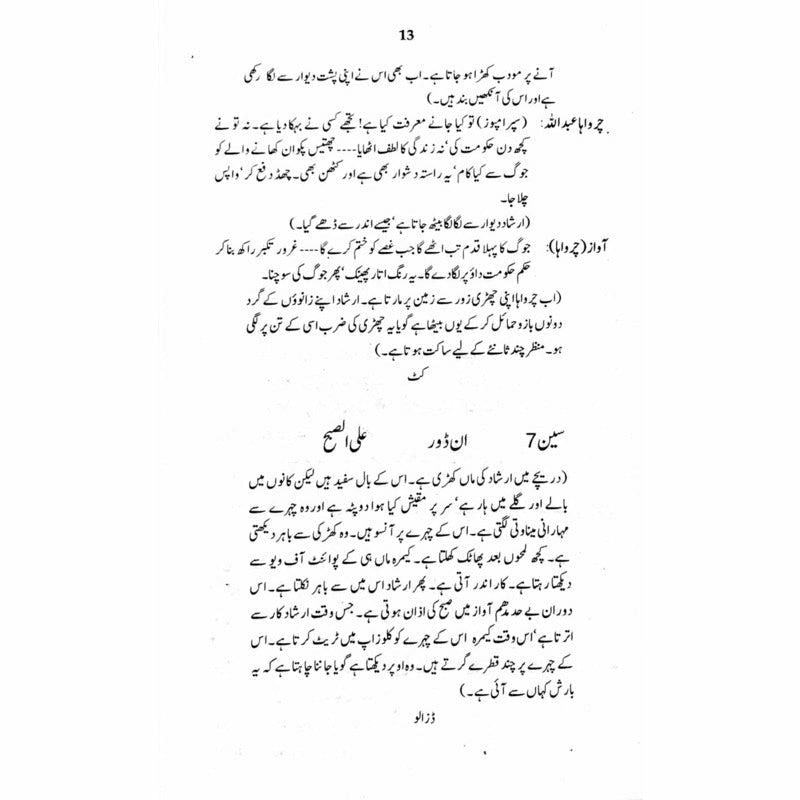 13
آنے پر مودب کھڑا ہو جاتا ہے۔ اب بھی اس نے اپنی پشت دیوار سے لگا رکھی
ہے اور اس کی آنکھیں بند ہیں۔)
چرواہا عبداللہ: (سپر امپوز) تو کیا جانے معرفت کیا ہے! تجھے کسی نے بہکا دیا ہے۔ نہ تو نے
کچھ دن حکومت کی‘ نہ زندگی کا لطف اٹھایا---- چھتیس پکوان کھانے والے کو
جوگ سے کیا کام‘ یہ راستہ دشوار بھی ہے اور کٹھن بھی۔ چھڈ دفع کر‘ واپس
چلا جا۔
(ارشاد دیوار سے لگا لگا بیٹھ جاتا ہے‘ جیسے اندر سے ڈھے گیا۔)
آواز (چرواہا): جوگ کا پہلا قدم تب اٹھے گا جب غصے کو ختم کرے گا---- غرور تکبر راکھ بنا کر
حکم حکومت داؤ پر لگا دے گا۔ یہ رنگ اتار پھینک‘ پھر جوگ کی سوچنا۔
(اب چرواہا اپنی چھڑی زور سے زمین پر مارتا ہے۔ ارشاد اپنے زانوؤں کے گرد
دونوں بازو حمائل کر کے یوں بیٹھا ہے گویا یہ چھڑی کی ضرب اسی کے تن پر لگی
ہو۔ منظر چند ثانئے کے لیے ساکت ہوتا ہے۔)
کٹ
سین 7 ان ڈور علی الصبح
(دریچے میں ارشاد کی ماں کھڑی ہے۔ اس کے بال سفید ہیں لیکن کانوں میں
بالے اور گلے میں ہار ہے‘ سر پر مقیش کیا ہوا دوپٹہ ہے اور وہ چہرے سے
مہارانی میناوتی لگتی ہے۔ اس کے چہرے پر آنسو ہیں۔ وہ کھڑکی سے باہر دیکھتی
ہے۔ کچھ لمحوں بعد پھاٹک کھلتا ہے۔ کیمرہ ماں ہی کے پوائنٹ آف ویو سے
دیکھتا رہتا ہے۔ کار اندر آتی ہے۔ پھر ارشاد اس میں سے باہر نکلتا ہے۔ اس
دوران بے حد مدھم آواز میں صبح کی اذان ہوتی ہے۔ جس وقت ارشاد کار سے
اترتا ہے‘ اس وقت کیمرہ اس کے چہرے کو کلوز اپ میں ٹریٹ کرتا ہے۔ اس
کے چہرے پر چند قطرے گرتے ہیں۔ وہ اوپر دیکھتا ہے گویا جاننا چاہتا ہے کہ یہ
بارش کہاں سے آئی ہے۔)
ڈزالو